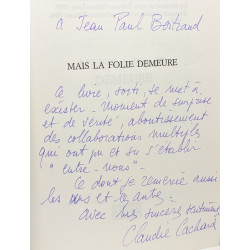 à Jean Paul Bertrand
MAIS LA FOLIE DEMEURE
Ce livre, sorti, se met à
exister - moment de surprise
et de vérité, aboutissement
des collaborations multiples
qui ont pu et su s'établir
"entre-nous" -
Ce dont je remercie aussi
les uns et les autres -
avec mes sincères sentiments
Claudie Cachard